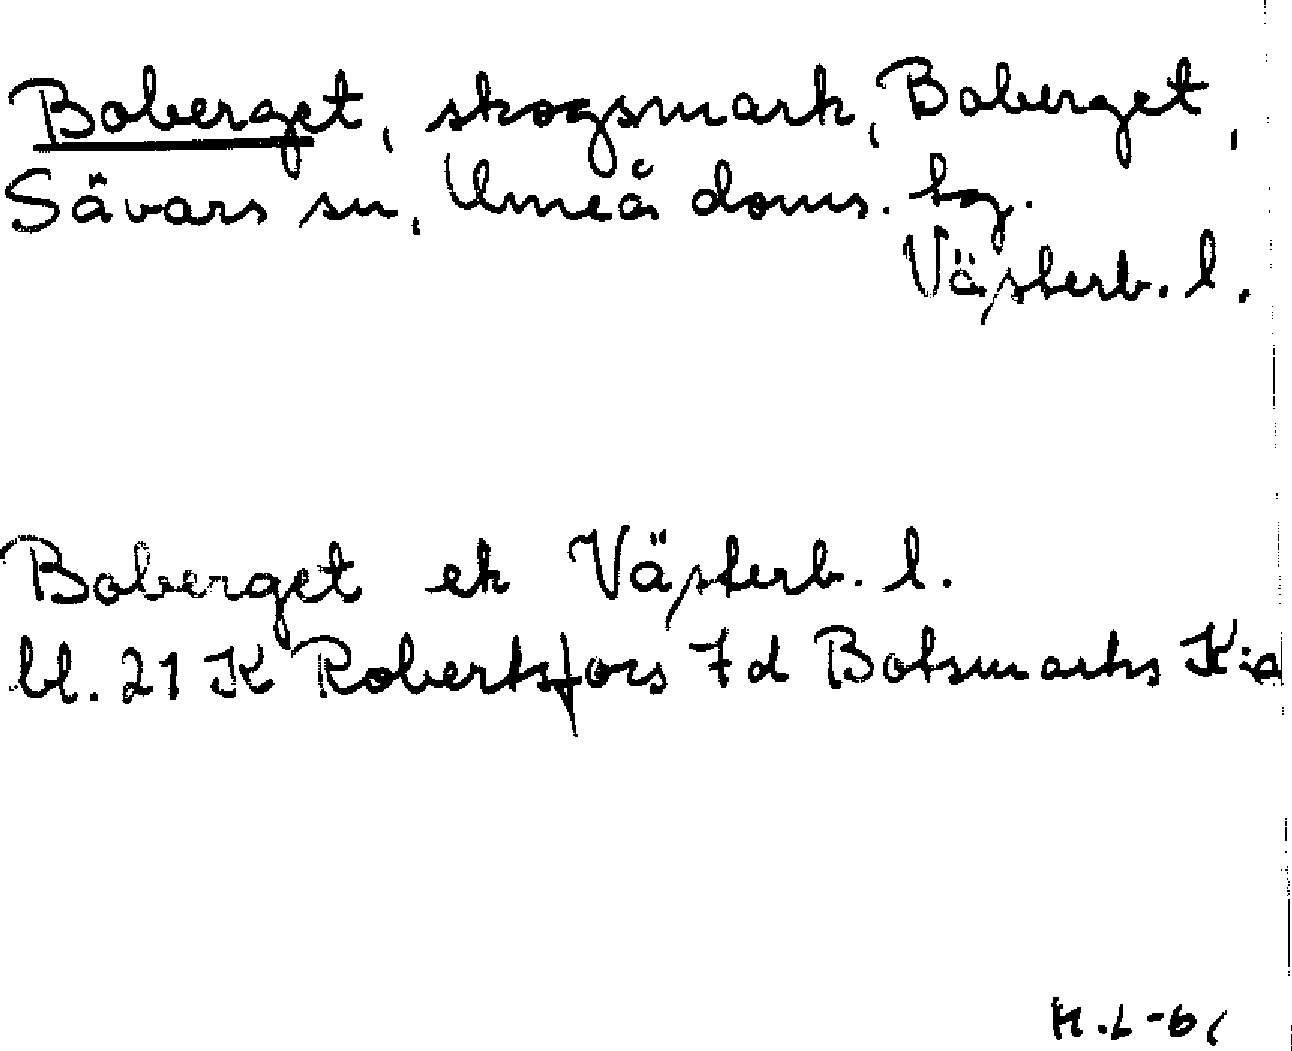 Boberget, skogsmark, Boberget,
Sävars sn, Umeå doms. tg.
Västerb. l.
Boberget ek Västerb. l.
bl. 21 K Robertsfors 7d Botsmarks K:a